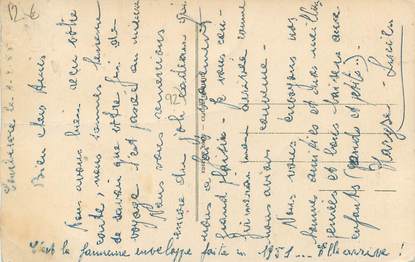 12€
Bien chers Amis
Nous avons bien reçu votre
carte, nous sommes heureux
de savoir que votre fin de
voyage s'est passé au mieux
Nous vous remercions
encore du joli cadeau qui
nous a fait
grand plaisir. Je vous con-
firmerai mon arrivée comme
nous avions convenu.
Nous vous envoyons nos
bonnes amitiés et nos meilleu-
res et bons baisers aux
enfants (grands et petits).
Maryse - Lucien
C'est la fameuse enveloppe faite en 1951 ... Elle arrive !